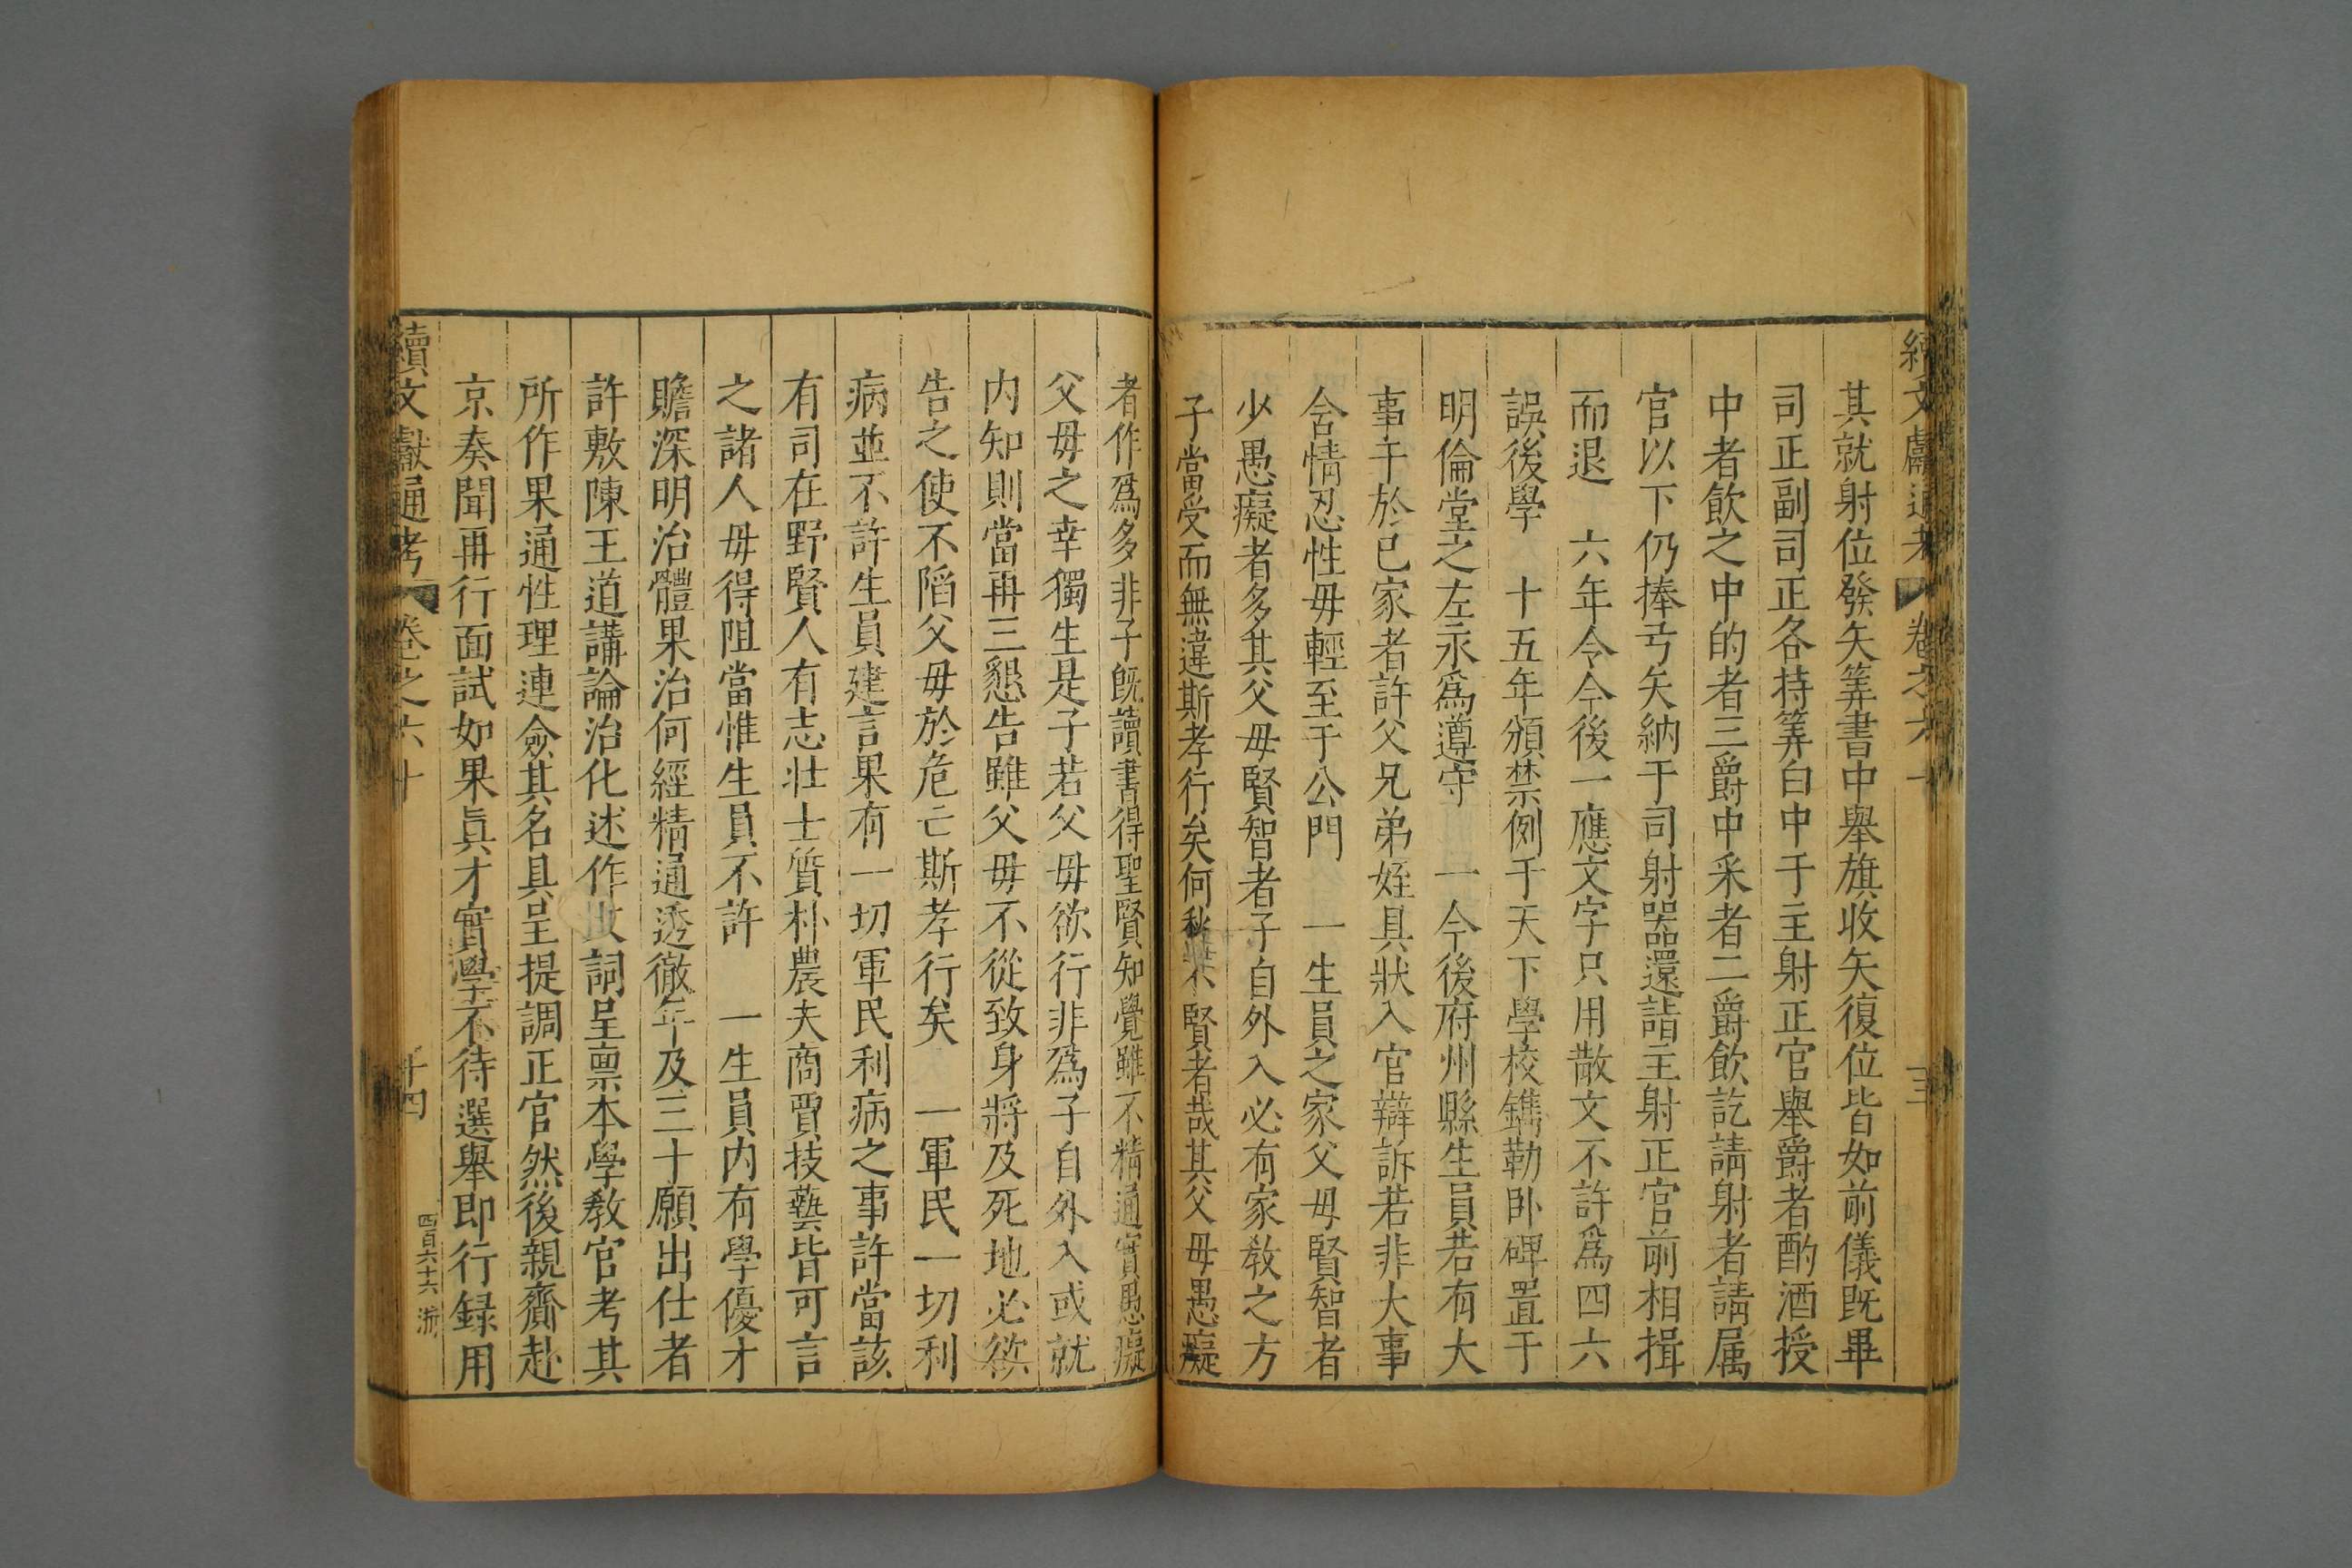 續文獻通考 卷之六十 十三
其就射位發矢筭書中舉旗收矢復位皆如前儀既畢
司正副司正各持筭白中于主射正官舉爵者酌酒授
中者飲之中的者三爵中采者二爵飲訖請射者請属
官以下仍捧弓矢納于司射器還詣主射正官前相揖
而退 六年令今後一應文字只用散文不許爲四六
誤後學 十五年頒禁例于天下學校鐫勒卧碑置于
明倫堂之左永爲遵守 一今後府州縣生員若有大
事干於已家者許父兄弟姪具狀入官辯訴若非大事
含情忍性毋輕至于公門 一生員之家父母賢智者
少愚癡者多其父母賢智者子自外入必有家教之方
子當受而無違斯孝行矣何愁不賢者哉其父母愚癡
者作爲多非子既讀書得聖賢知覺雖不精通實愚癡
父毋之幸獨生是子若父毋欲行非爲子自外入或就
内知則當再三懇告雖父毋不從致身將及死地必欲
告之使不陷父毋於危亡斯孝行矣 一軍民一切利
病並不許生員建言果有一切軍民利病之事許當該
有司在野賢人有志壯士質朴農夫商賈技藝皆可言
之諸人毋得阻當惟生員不許 一生員内有學優才
贍深明治體果治何經精通透徹年及三十願出仕者
許敷陳王道講論治化述作文詞呈禀本學教官考其
所作果通性理連僉其名具呈提調正官然後親齎赴
京奏聞再行面試如果眞才實學不待選舉即行録用
續文獻通考 卷之六十 十四 四百六十六 浙